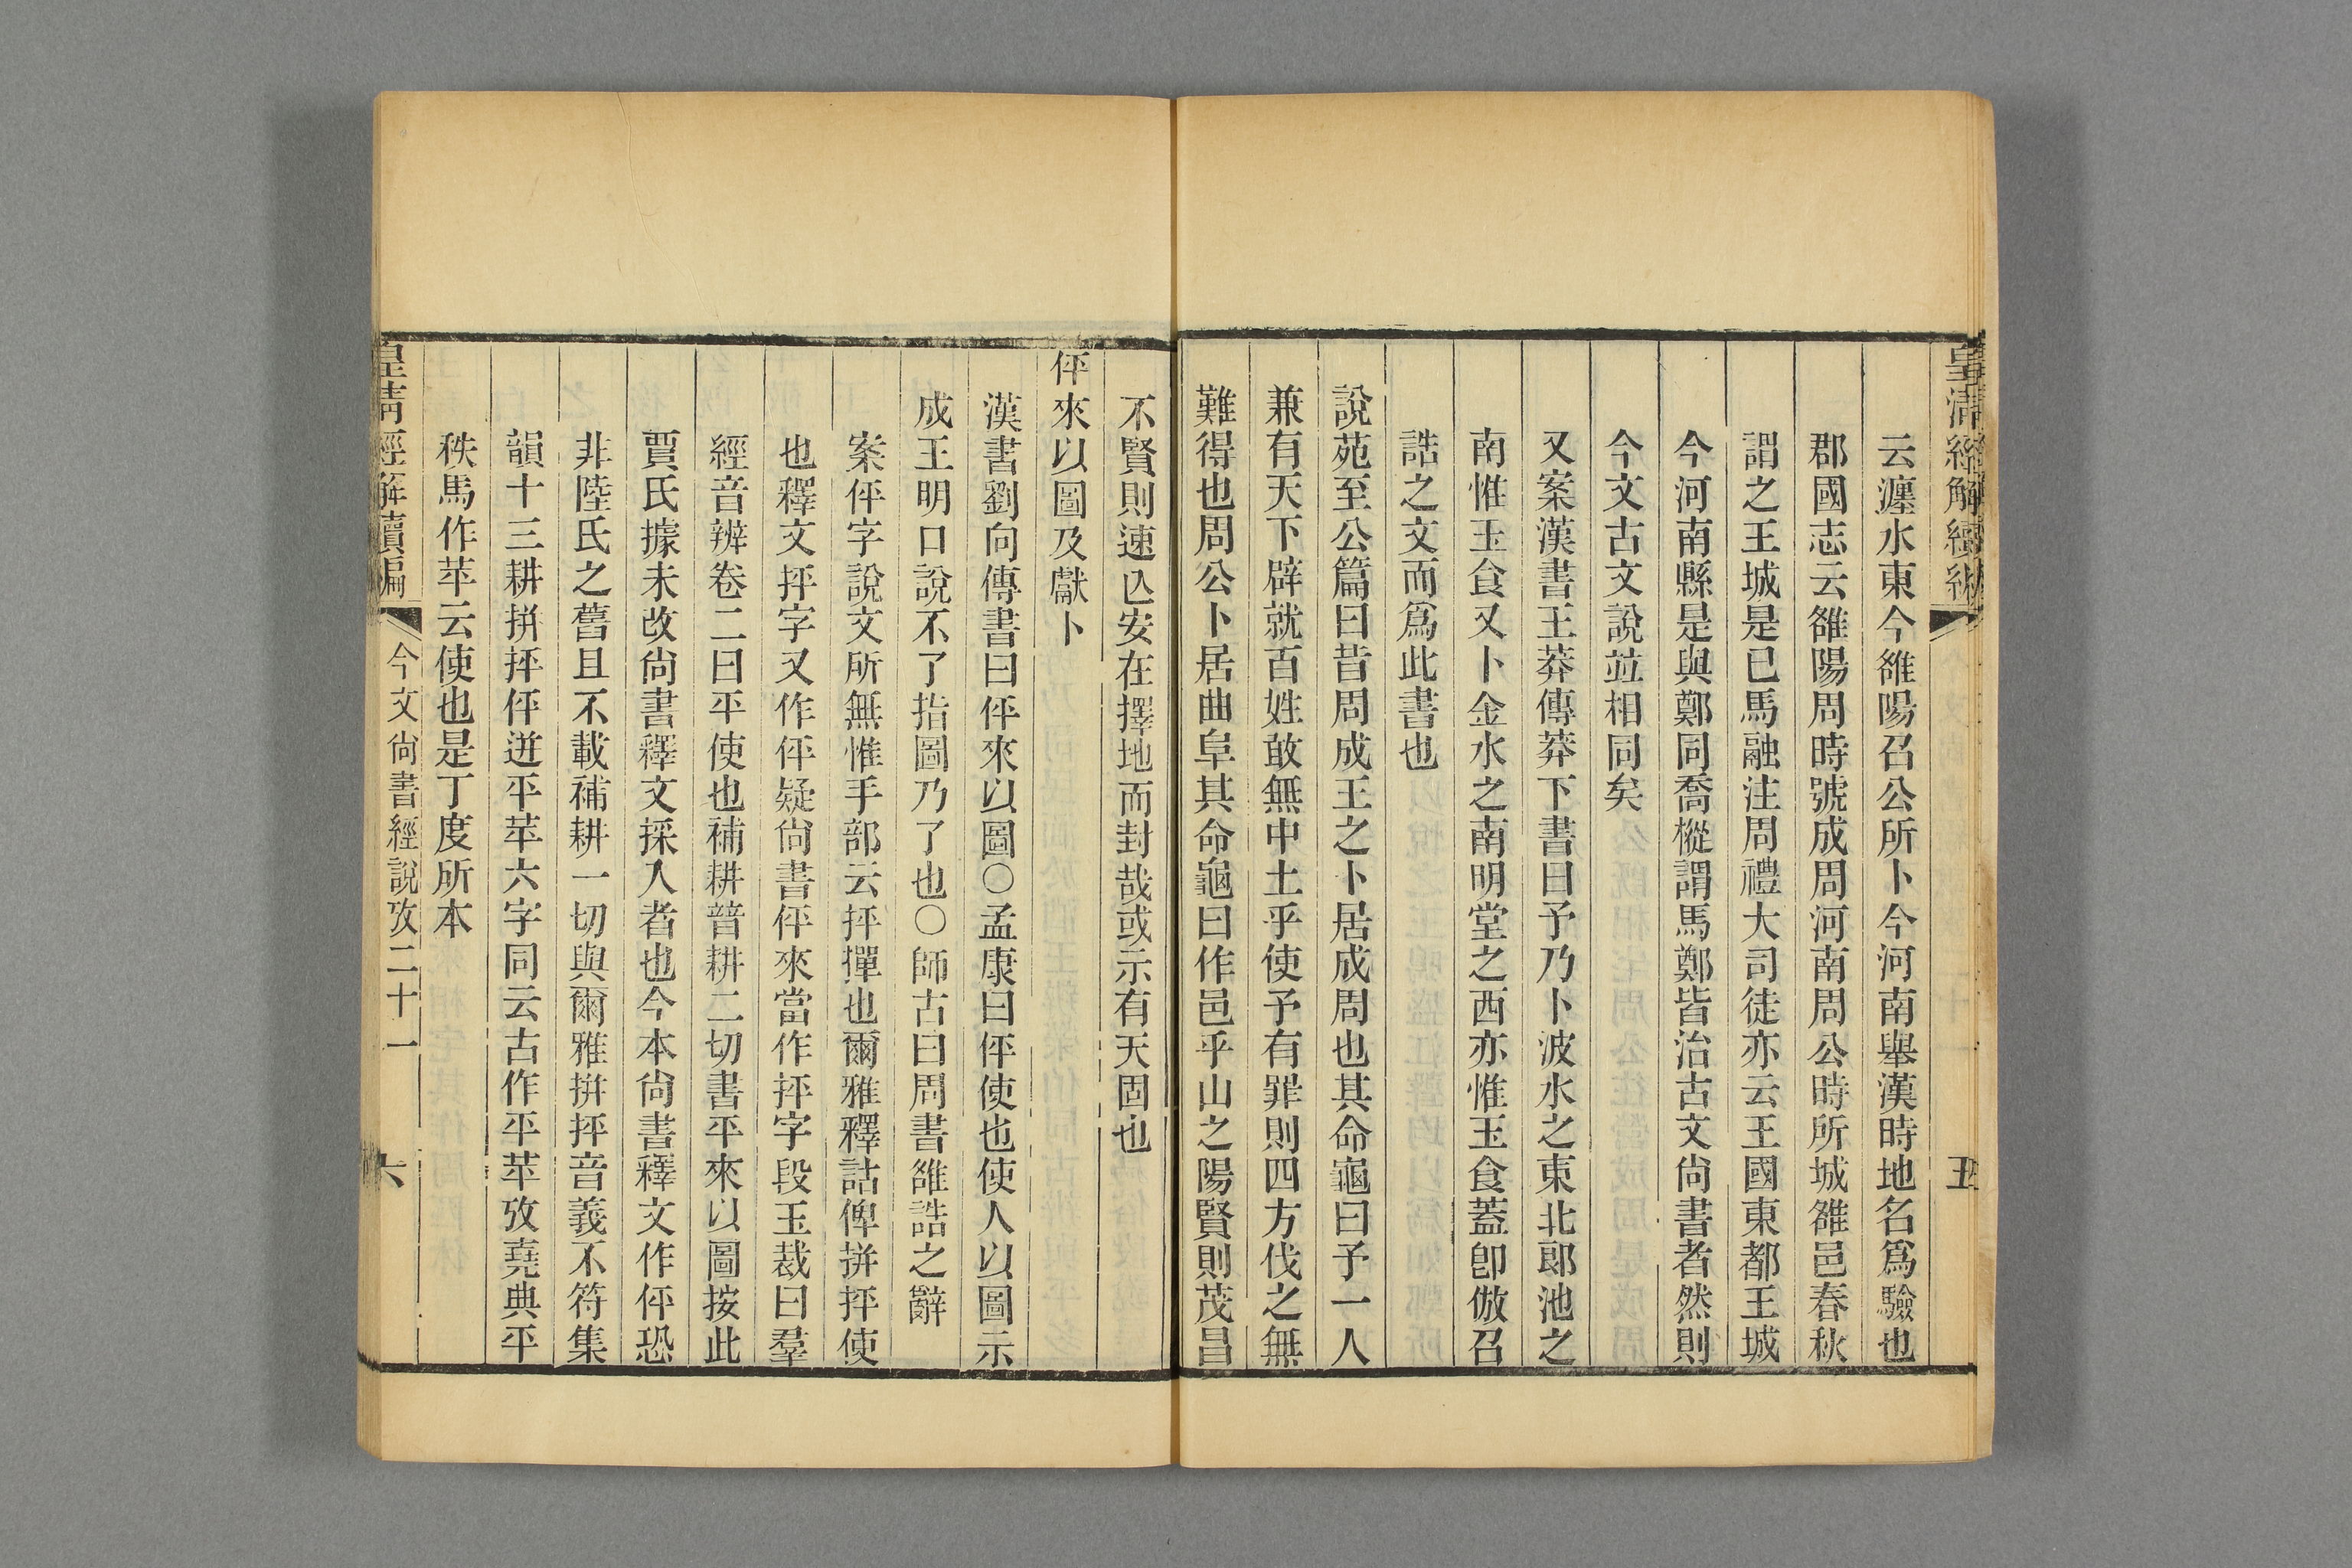 皇清經解續編
五
云瀍水東今雒陽召公所卜今河南舉漢時地名爲驗也
郡國志云雒陽周時號成周河南周公時所城雒邑春秋
謂之王城是已馬融注周禮大司徒亦云王國東都王城
今河南縣是與鄭同喬樅謂馬鄭皆治古文尙書者然則
今文古文說竝相同矣
又案漢書王莽傳莽下書曰予乃卜波水之東北郞池之
南惟玉食又卜金水之南明堂之西亦惟玉食葢卽倣召
誥之文而爲此書也
說苑至公篇曰昔周成王之卜居成周也其命龜曰予一人
兼有天下辟就百姓敢無中土乎使予有罪則四方伐之無
難得也周公卜居曲阜其命龜曰作邑乎山之陽賢則茂昌
不賢則速亾安在擇地而封哉或示有天固也
伻來以圖及獻卜
漢書劉向傳書曰伻來以圖○孟康曰伻使也使人以圖示
成王明口說不了指圖乃了也○師古曰周書雒誥之辭
案伻字說文所無惟手部云抨撣也爾雅釋詁俾拼抨使
也釋文抨字又作伻疑尙書伻來當作抨字段玉裁曰羣
經音辨卷二曰平使也補耕普耕二切書平來以圖按此
賈氏據未改尙書釋文採入者也今本尙書釋文作伻恐
非陸氏之舊且不載補耕一切與爾雅拼抨音義不符集
韻十三耕拼抨伻迸平苹六字同云古作平苹攷堯典平
秩馬作苹云使也是丁度所本
皇清經解續編
今文尙書經說攷二十一
六